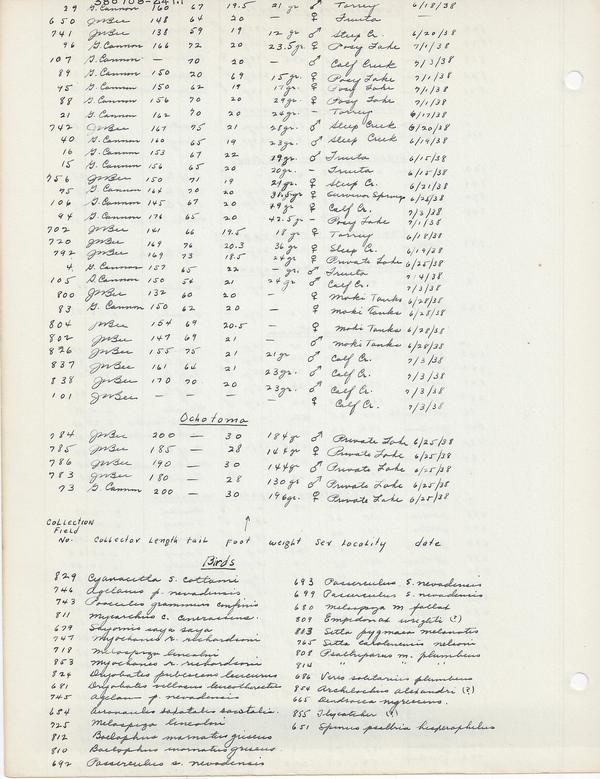 29 G. Cannon 160 67 19.5 21 gr ♂ Torrey 6/18/38
650 JWBee 148 64 20 ♀ Fruita —
741 JWBee 138 59 19 12 gr ♂ Steep Cr. 6/20/38
96 G. Cannon 166 72 20 23.5 gr. ♀ Posy Lake 7/1/38
107 G. Cannon — 70 20 — ♂ Calf Creek 7/3/38
89 G. Cannon 150 20 69 15 gr. ♀ Posy Lake 7/1/38
95 G. Cannon 150 62 19 17 gr. ♀ Posy Lake 7/1/38
88 G. Cannon 156 70 20 29 gr. ♀ Posy Lake 7/1/38
21 G. Cannon 162 70 20 26 gr. — Torrey 6/17/38
742 JWBee 167 75 21 28 gr. ♂ Steep Creek 6/20/38
40 G. Cannon 160 65 19 23 gr. ♂ Steep Creek 6/19/38
16 G. Cannon 153 67 22 19 gr. ♂ Fruita 6/15/38
15 G. Cannon 156 65 20 20 gr. — Fruita 6/15/38
756 JWBee 150 71 19 21 gr. ♀ Steep Cr. 6/21/38
75 G. Cannon 164 70 20 31.5 gr ♀ Survivor Springs 6/25/38
106 G. Cannon 145 67 20 49 gr ♀ Calf Cr. 7/3/38
94 G. Cannon 176 65 20 42.5 gr — Posy Lake 7/1/38
702 JWBee 161 66 19.5 18 gr ♀ Torrey 6/18/38
720 JWBee 169 76 20.3 36 gr ♀ Steep Cr. 6/19/38
792 JWBee 169 73 18.5 24 gr ♀ Private Lake 6/25/38
4 G. Cannon 157 65 22 — gr. ♂ Fruita 7/14/38
105 G. Cannon 150 54 21 24 gr ♂ Calf Cr. 7/3/38
800 JWBee 132 60 20 — ♀ Moki Tanks 6/28/38
83 G. Cannon 150 62 20 — ♀ Moki Tanks 6/28/38
804 JWBee 154 69 20.5 — ♀ Moki Tanks 6/28/38
802 JWBee 147 69 21 — ♂ Moki Tanks 6/28/38
826 JWBee 155 75 21 21 gr ♂ Calf Cr. 7/3/38
837 JWBee 161 64 21 23 gr. ♂ Calf Cr. 7/3/38
838 JWBee 170 70 20 23 gr. ♂ Calf Cr. 7/3/38
101 JWBee — — — — ♀ Calf Cr. 7/3/38
Ochotoma
784 JWBee 200 — 30 184 gr ♂ Private Lake 6/25/38
785 JWBee 185 — 28 144 gr ♀ Private Lake 6/25/38
786 JWBee 190 — 30 144 gr ♂ Private Lake 6/25/38
783 JWBee 180 — 28 130 gr ♂ Private Lake 6/25/38
73 G. Cannon 200 — 30 196 gr. ♀ Private Lake 6/25/38
Collection
Field
No. Collector Length tail Foot weight Sex Locality date
Birds
829 Cyanocitta s. cottami
746 Agelaius p. nevadensis
743 Pooecetes grammeus confinis
811 Myiarchus c. cinerascens
679 Sayornis saya saya
747 Myochanes r. richardsoni
718 Melospiza lincolni
853 Myochanes r. richardsoni
824 Dryobates pubescens leucurus
681 Dryobates villosus leucothorectis
745 Agelaius p. nevadensis
654 Aeronautes saxatalis saxatalis
725 Melospiza lincolni
812 Baeolophus inornatus griseus
810 Baeolophus inornatus griseus
692 Passerculus s. nevadensis
693 Passerculus s. nevadensis
699 Passerculus s. nevadensis
680 Melospiza m fallax
809 Empidonax wrighti (?)
803 Sitta pygmaea melanotis
765 Sitta carolinensis nelsoni
808 Psaltriparus m. plumbeus
814 " " "
686 Vireo solitarius plumbeus
854 Archilochus alexandri (?)
665 Dendroica nigrescens
855 Flycatcher (?)
651 Spinus psaltria hesperophilus